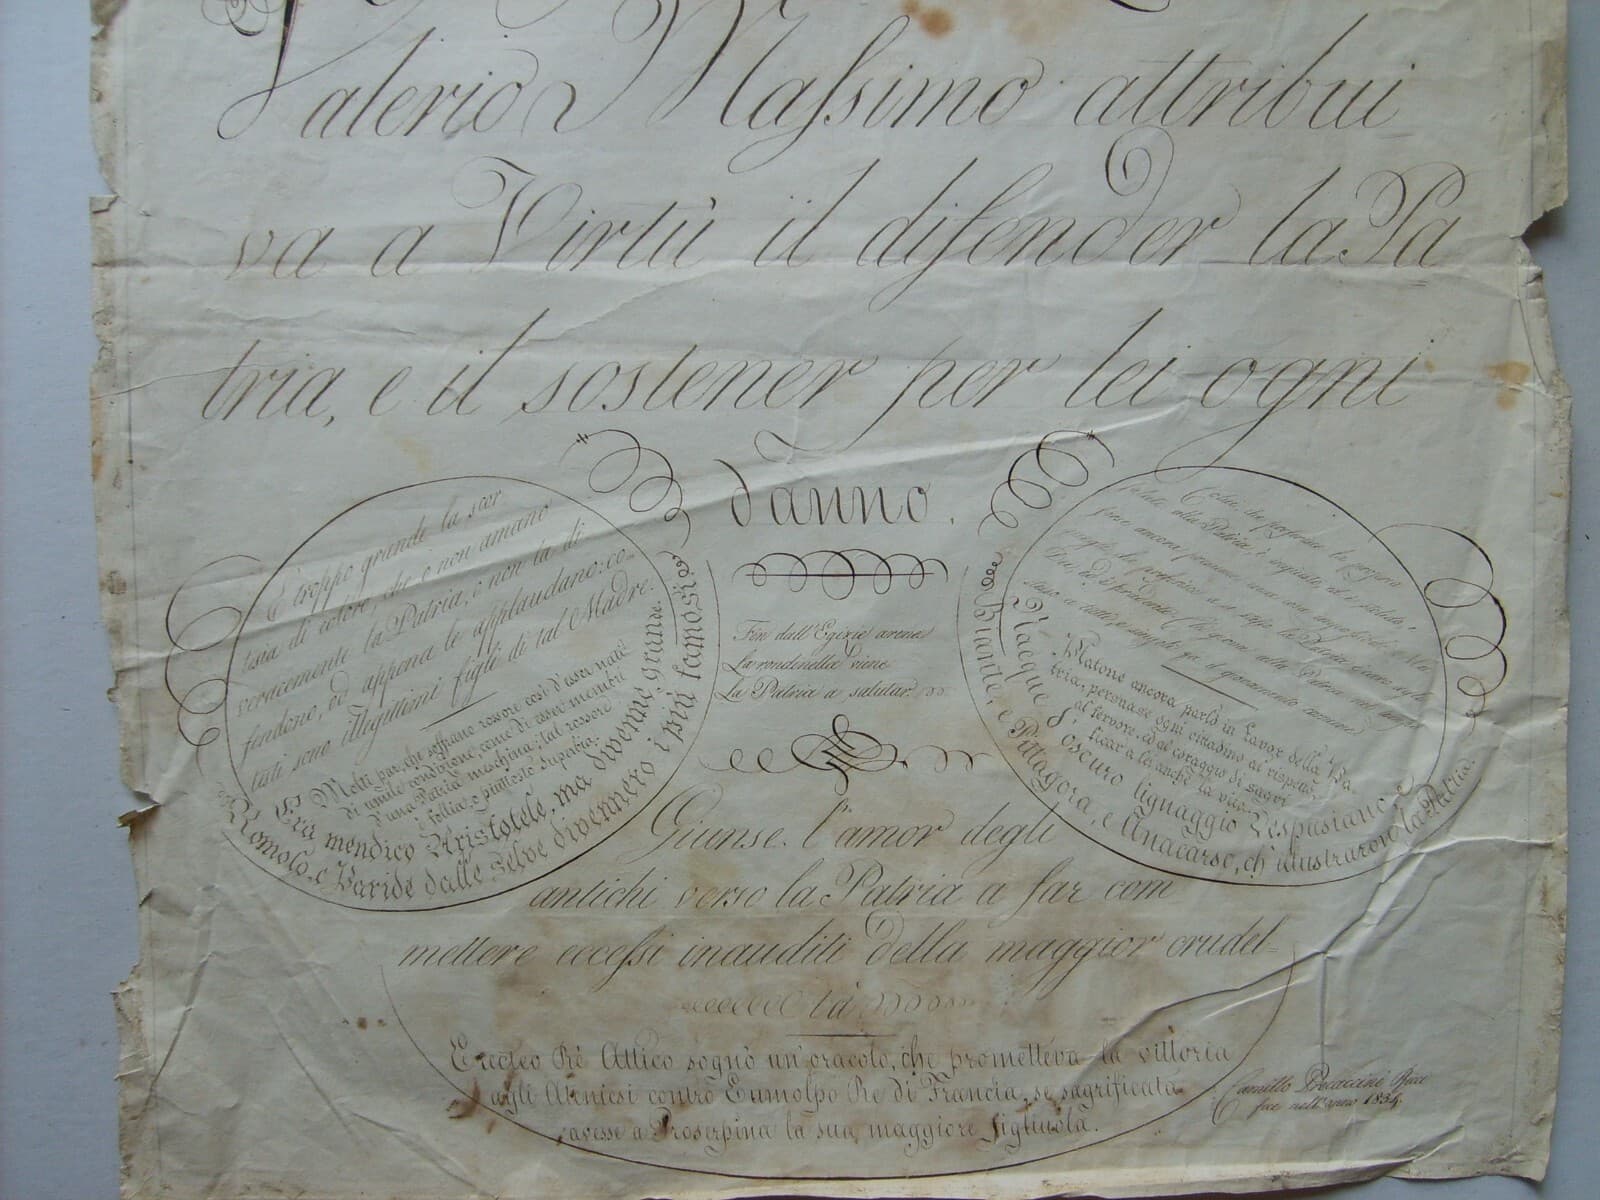 Valerio Massimo attribui
va a Virtù il difender la Pa
tria, e il sostener per lei ogni
danno.
È troppo grande la scor
tesia di coloro, che o non amano
veracemente la Patria, o non la di
fendono, od appena le applaudano: co-
tali sono illegittimi figli di tal Madre.
Molti par, che soffrano rossore così d'esser nati
di umile condizione, come di esser membri
d'una Patria meschina; tal rossore
è follia, o piuttosto superbia.
Era mendico Aristotele, ma divenne grande.
Romolo, e Paride dalle selve divennero i più famosi
Fin dall'Egizie arene
La rondinella viene
La Patria a salutar.
Colui, che profonde la propria
salute alla Patria, è
Platone ancora parlò in favor della Pa
tria; persuase ogni cittadino al rispetto,
al fervore, ed al coraggio di sagri
ficar a lei anche la vita.
Nacque d'oscuro lignaggio Vespasiano, e
Biante, e Pittagora, e Anacarso, ch'illustraron la Patria.
Giunse l'amor degli
antichi verso la Patria a far com
mettere eccessi inauditi della maggior crudel-
tà
Erecteo Rè Attico sognò un'oracolo, che prometteva la vittoria
agli Ateniesi contro Eumolpo Re di Francia, se sagrificata
avesse a Proserpina la sua maggiore figliuola.
Camillo
fece nell'anno 1834.